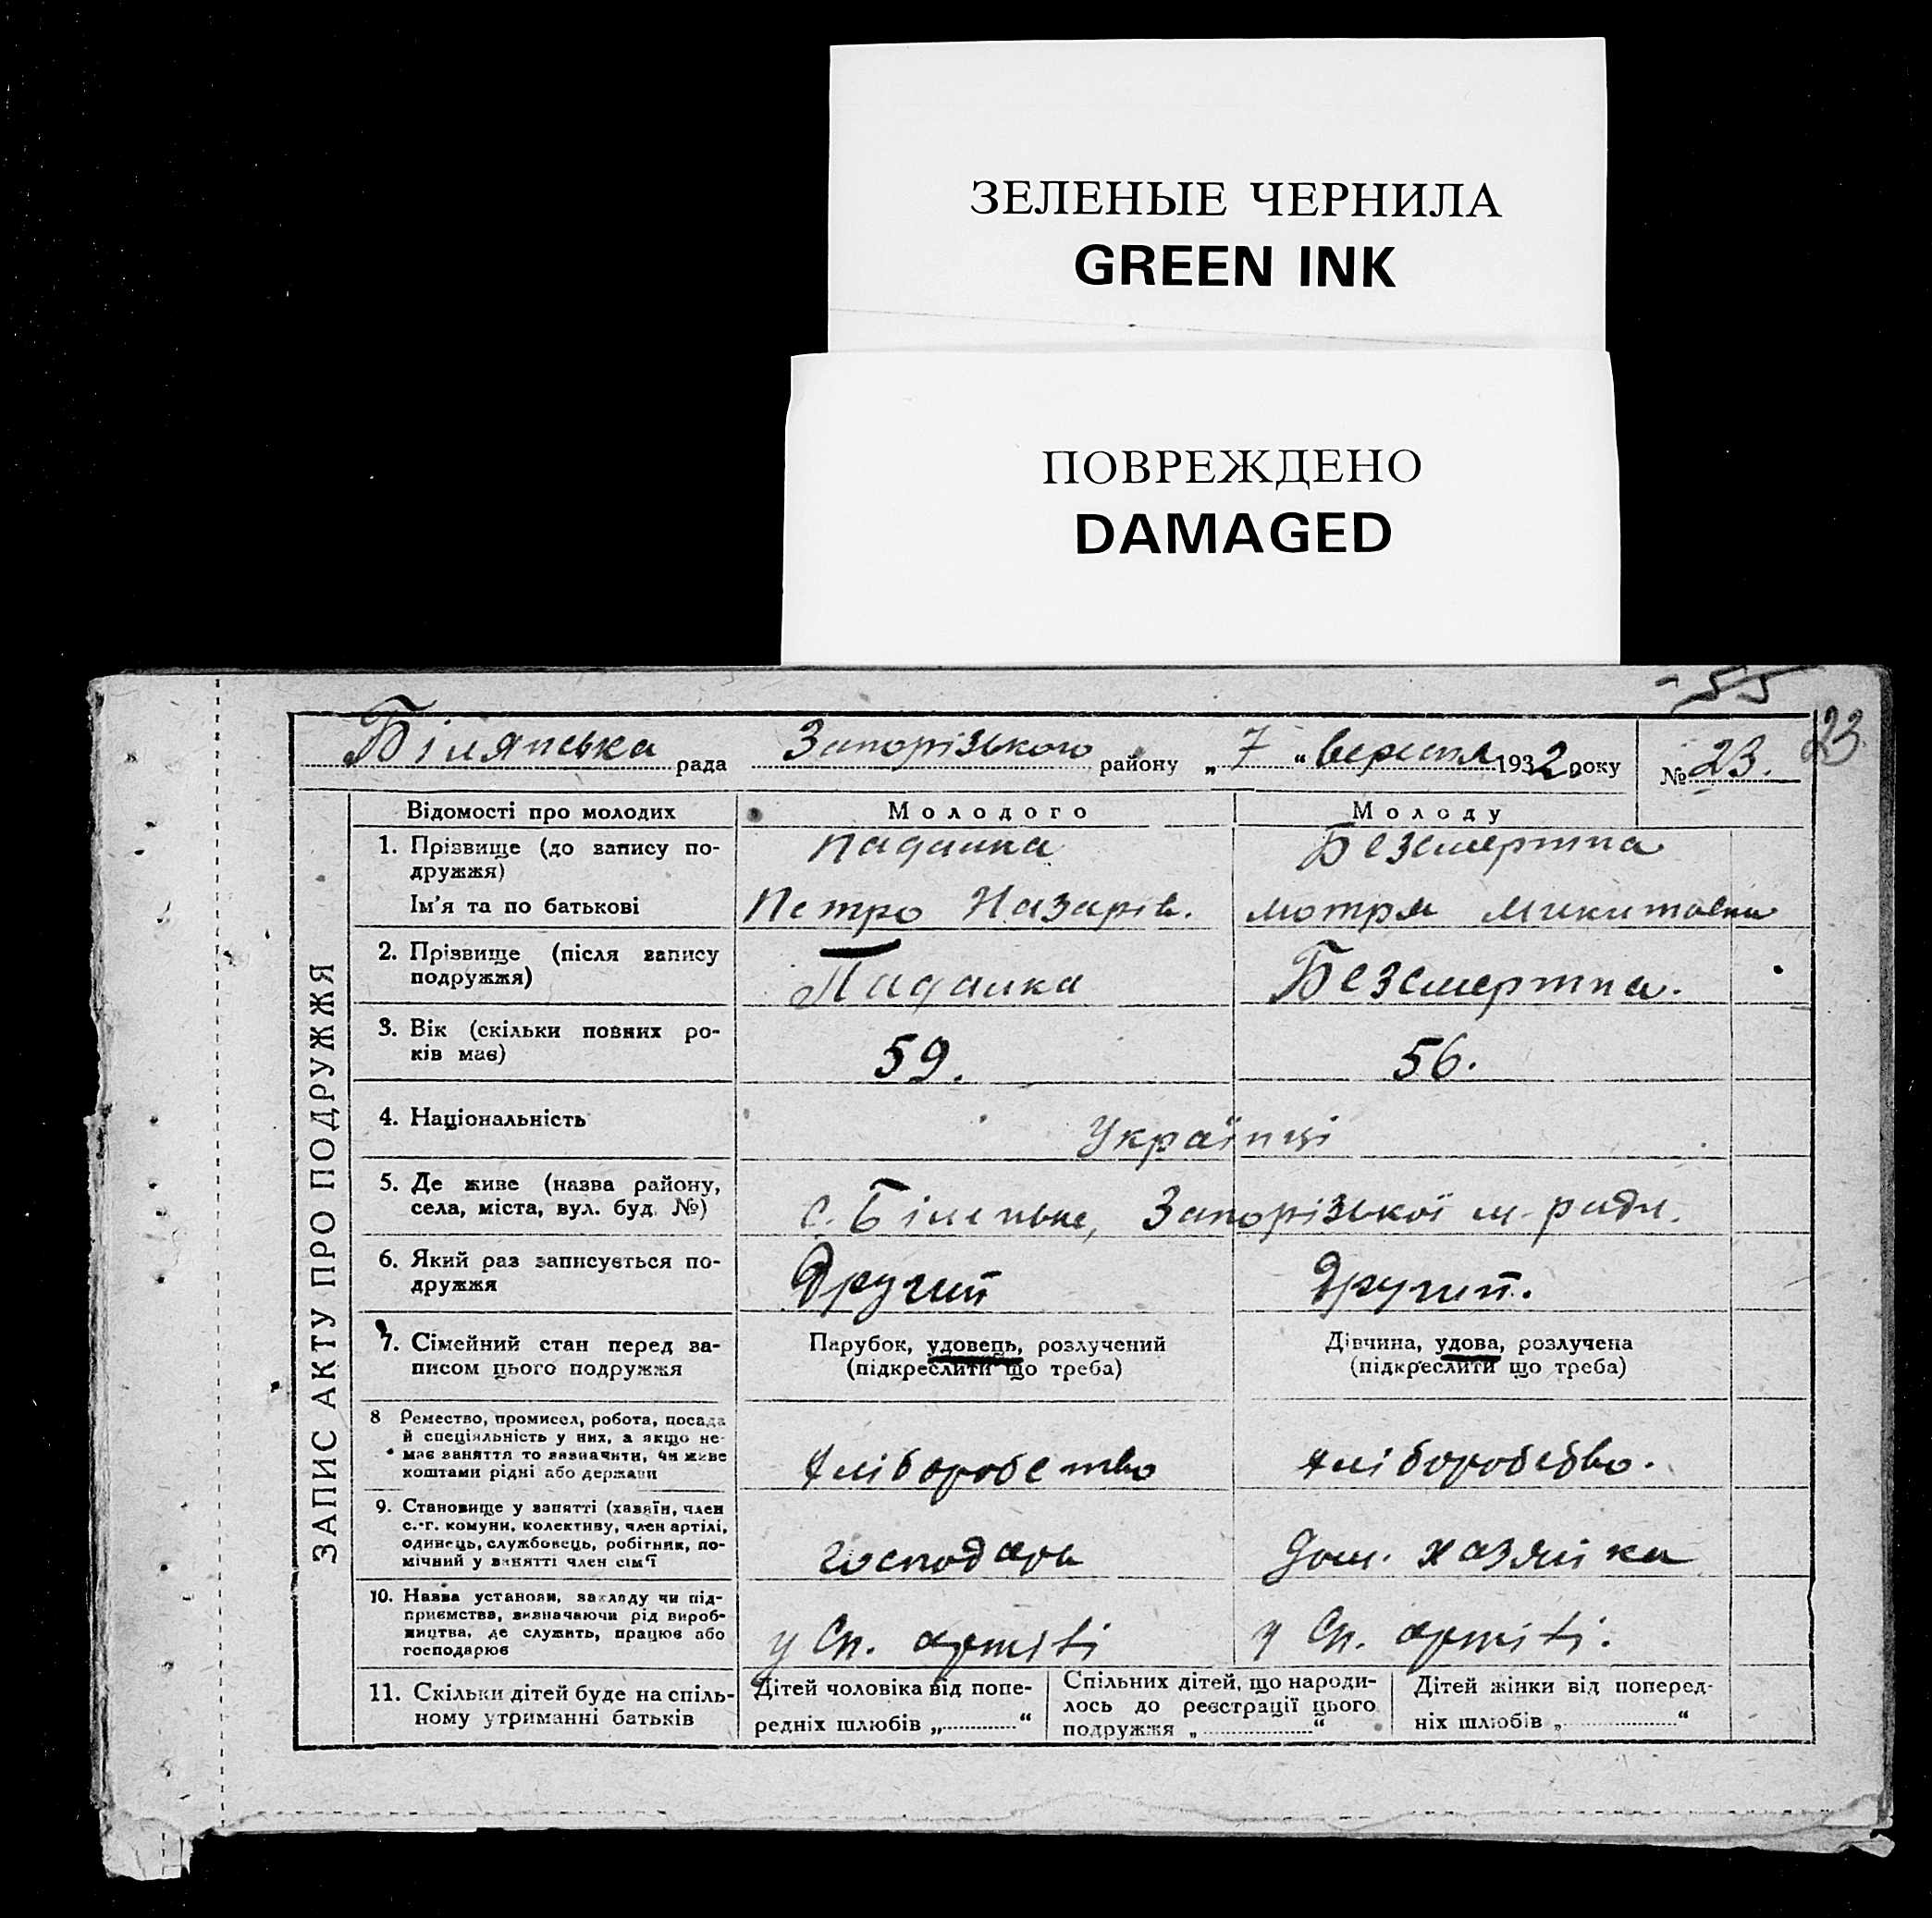 ЗЕЛЕНЫЕ ЧЕРНИЛА
GREEN INK
ПОВРЕЖДЕНО
DAMAGED
55
23
Білянська рада Запорізького району „ 7 “ вересня 1932 року № 23.
ЗАПИС АКТУ ПРО ПОДРУЖЖЯ
Відомості про молодих Молодого Молоду
1. Прізвище (до запису по-
дружжя) Падалка Безсмертна
Ім'я та по батькові Петро Назарів. Мотря Микитовна
2. Прізвище (після запису
подружжя) Падалка Безсмертна.
3. Вік (скільки повних ро-
ків має) 59. 56.
4. Національність Українці
5. Де живе (назва району,
села, міста, вул. буд. №) с. Біленьке, Запорізької м. ради.
6. Який раз записується по-
дружжя Другий Другий.
7. Сімейний стан перед за- Парубок, удовець, розлучений Дівчина, удова, розлучена
писом цього подружжя (підкреслити що треба) (підкреслити що треба)
8 Ремество, промисел, робота, посада
й спеціяльність у них, а якщо не-
має заняття то зазначити, чи живе
коштами рідні або держави хліборобство хліборобство.
9. Становище у занятті (хазяїн, член
с.-г. комуни, колективу, член артілі,
одинець, службовець, робітник, по-
мічний у занятті член сім'ї господарь дом. хазяйка
10. Назва установи, закладу чи під-
приємства, визначаючи рід вироб-
ництва, де служить, працює або
господарює у Сп. артілі у Сп. артілі.
11. Скільки дітей буде на спіль-
ному утриманні батьків
Дітей чоловіка від попе-
редніх шлюбів „ “
Спільних дітей, що народи-
лось до реєстрації цього
подружжя „ “
Дітей жінки від поперед-
ніх шлюбів „ “